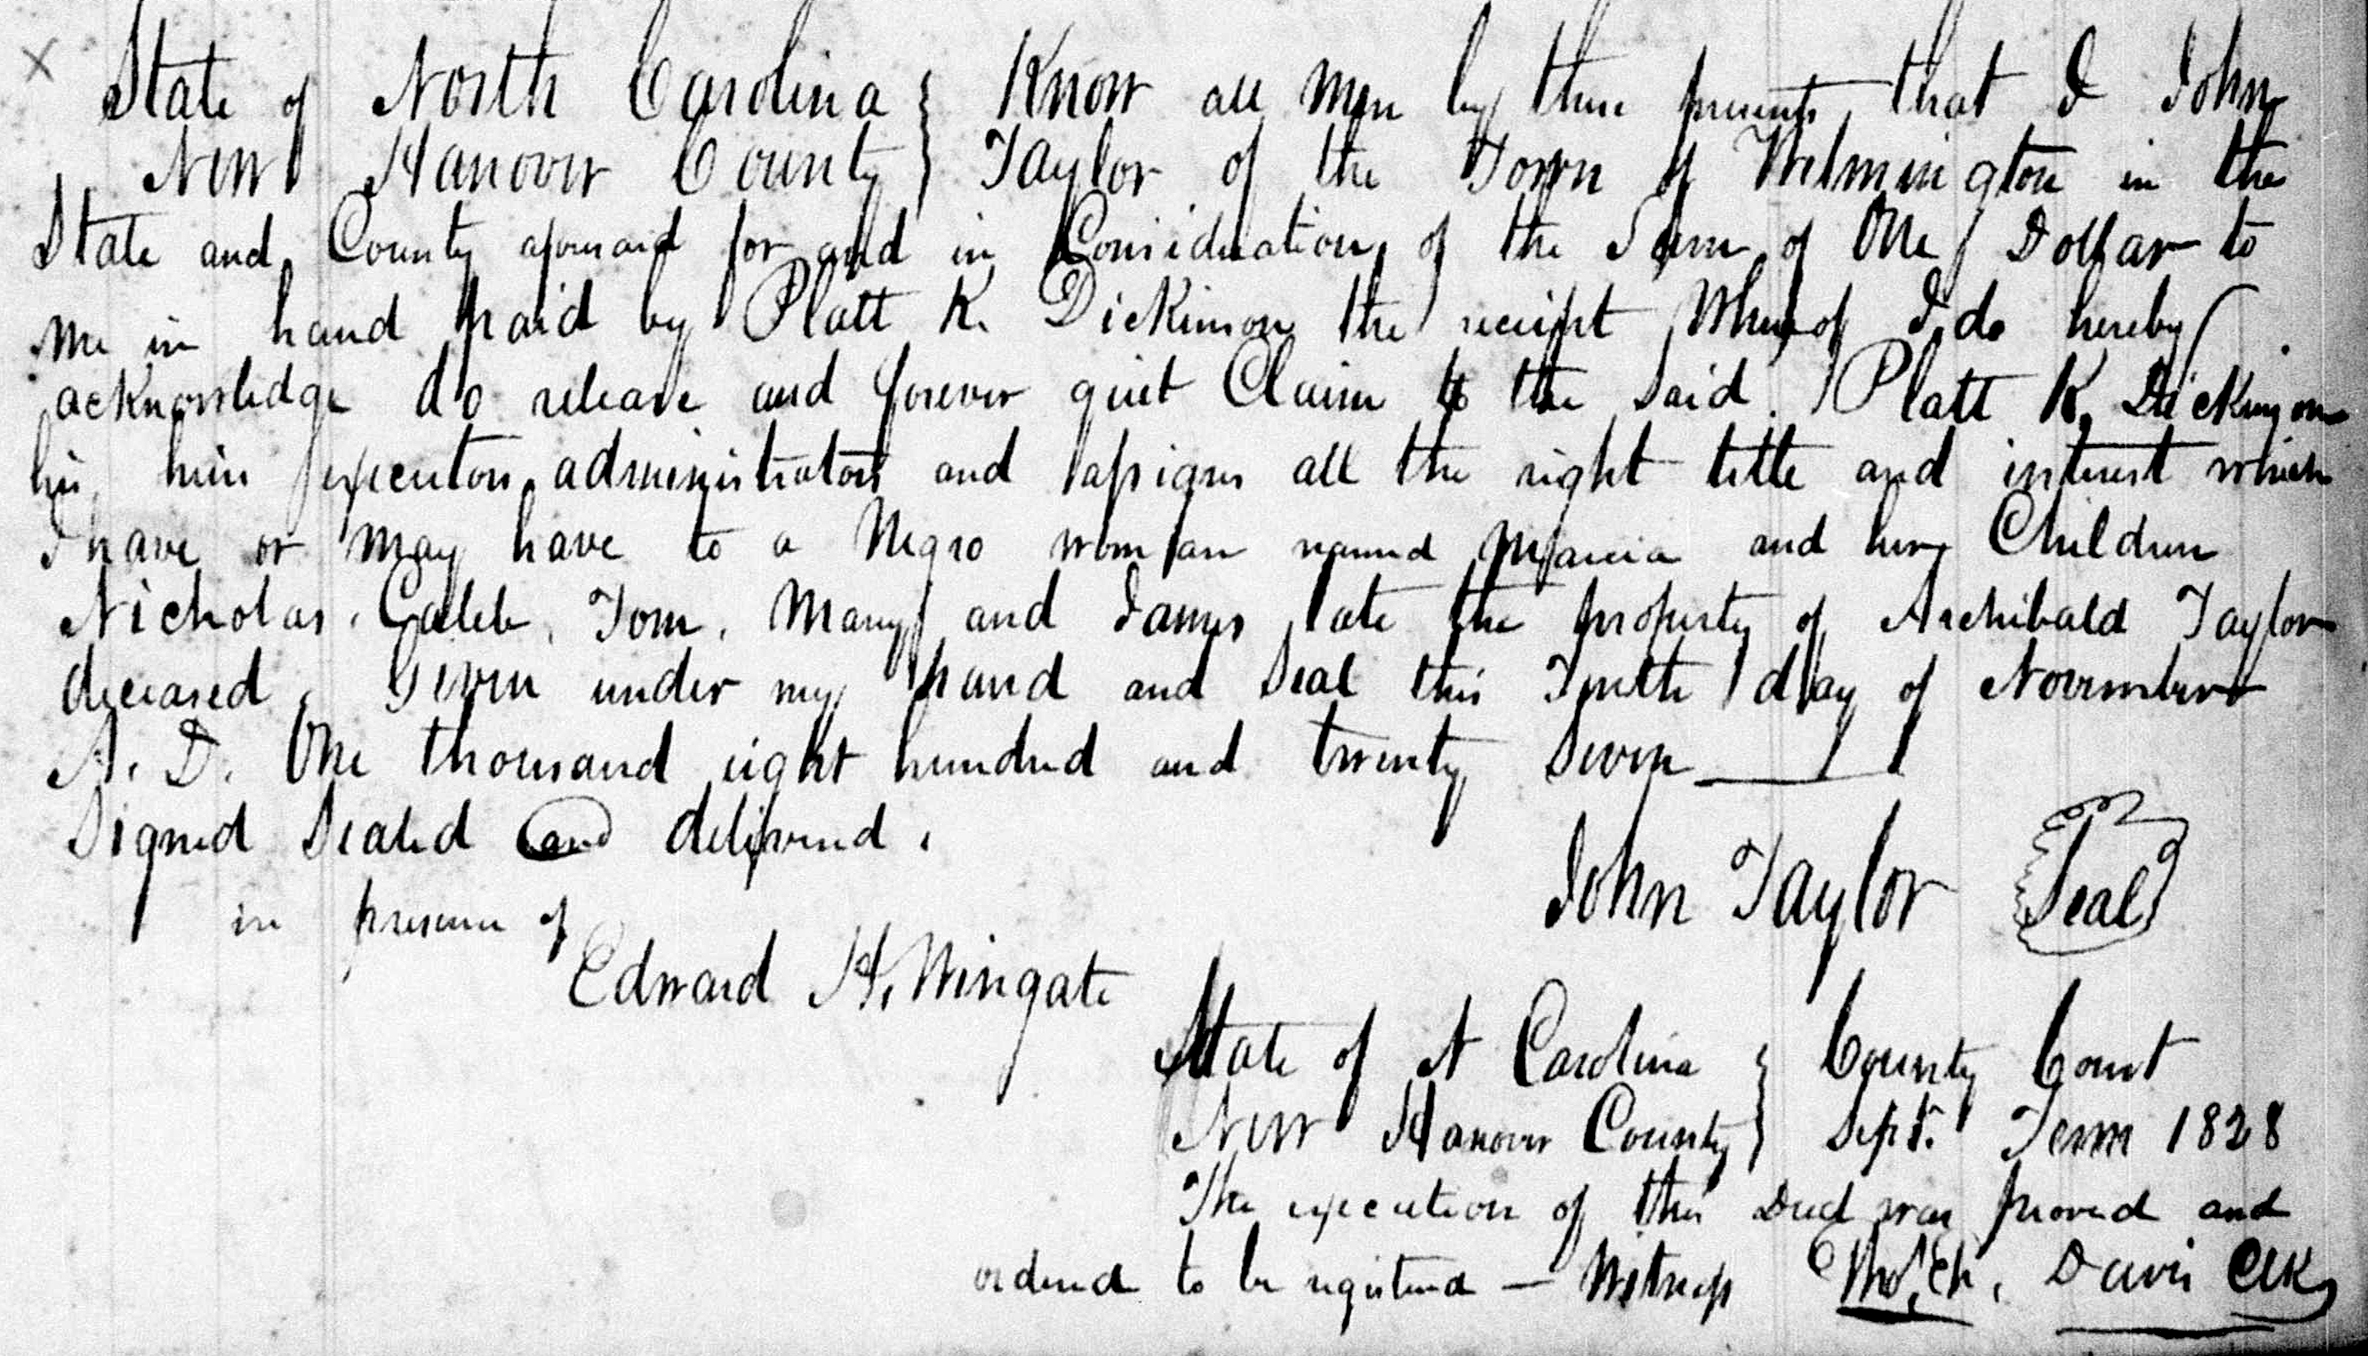 State of North Carolina } Know all men by these presents, that I John
New Hanover County } Taylor of the Town of Wilmington in the
State and County aforesaid for and in Consideration of the Sum of One Dollar to
me in hand paid by Platt K. Dickinson the receipt Whereof I do hereby
acknowledge do release and forever quit Claim to the Said Platt K. Dickinson
his heirs executors administrators and assigns all the right title and interest which
I have or may have to a Negro woman named and her Children
Nicholas, Caleb, Tom, Mary and James late the property of Archibald Taylor
deceased. Given under my hand and Seal this Tenth day of November
A. D. One thousand eight hundred and twenty Seven
Signed Sealed and delivered.
in presence of
John Taylor Seal
Edward H. Wingate
State of N Carolina } County Court
New Hanover County } Sept. Term 1828
The execution of this Deed was proved and
ordered to be registered — Witness Davis Clk